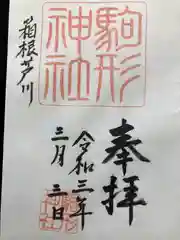 奉拝
駒形
神社
箱根芦川
令和三年
三月三日